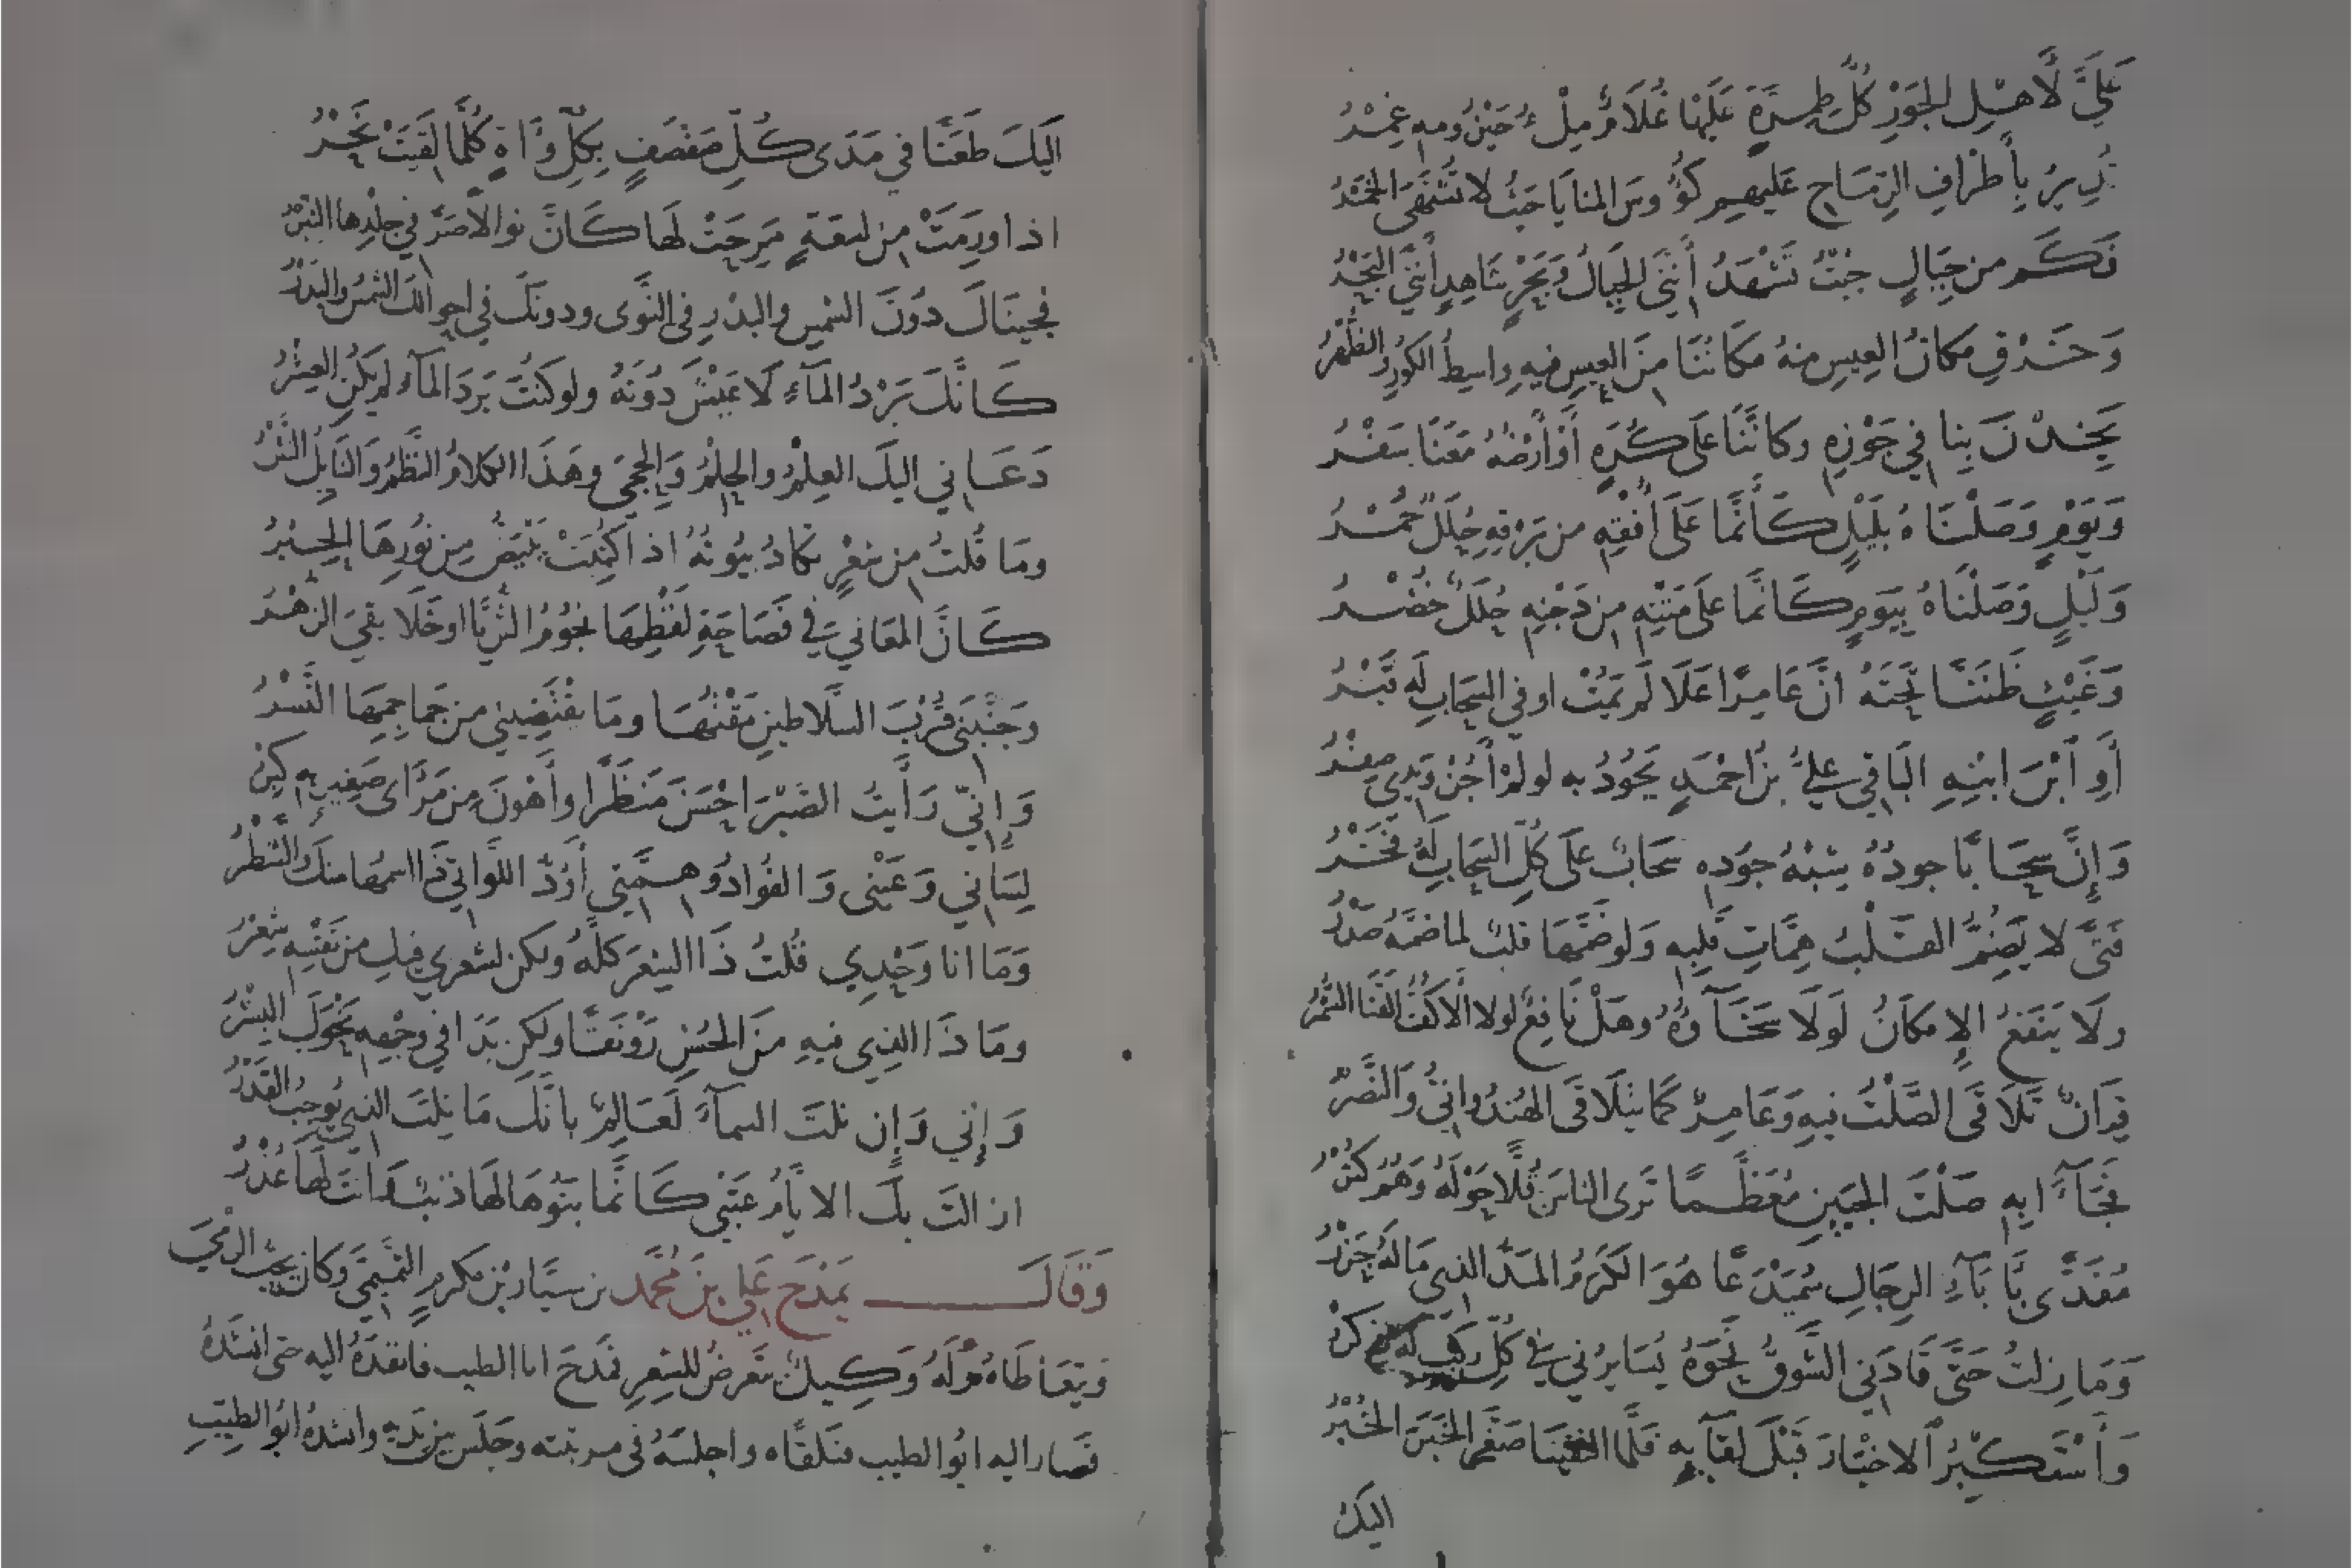 عَلَيَّ لِأَهْلِ الجَوْرِ كُلُّ طِمِرَّةٍ عَلَيْهَا غُلَامٌ مِلْءُ حَيْزُومِهِ غِمْرُ
يُدِيرُ بِأَطْرَافِ الرِّمَاحِ عَلَيْهِمِ كُؤُوسَ المَنَايَا حَيْثُ لا تُشْتَهَى الخَمْرُ
وَكَم من جِبَالٍ جُبْتُ تَشْهَدُ أَنَّنِي الجِبَالُ وَبَحْرٍ شَاهِدٍ أَنَّنِي البَحْرُ
وَخَرْقٍ مكانُ العِيسِ مِنهُ مَكَانُنَا مِنَ العِيسِ فِيهِ واسِطُ الكُورِ والظَّهْرُ
يَخِدْنَ بِنا في جَوْزِهِ وكأَنَّنَا عَلَى كُرَةٍ أَوْ أَرْضُهُ مَعَنَا سَفْرُ
وَيَوْمٍ وَصَلْنَاهُ بِلَيْلٍ كَأَنَّمَا عَلَى أُفْقِهِ من بَرْقِهِ حُلَلٌ حُمْرُ
وَلَيْلٍ وَصَلْنَاهُ بِيَومٍ كَأَنَّمَا عَلَى مَتْنِهِ مِن دَجْنِهِ حُلَلٌ خُضْرُ
وَغَيْثٍ ظَنَنَّا تَحْتَهُ انَّ عَامِرًا عَلَا لَم يَمُتْ او في السَّحَابِ لَهُ قَبْرُ
أَوِ ابْنَ ابْنِهِ البَاقِي عَلِيَّ بْنَ احْمَدٍ يَجُودُ به لو لَمْ أَجُزْ وَيَدِي صِفْرُ
وَإِنَّ سَحَابًا جودُهُ مِثْلُ جُودِهِ سَحَابٌ عَلَى كُلِّ السَّحَابِ لَهُ فَخْرُ
فَتًى لا يَضُمُّ القَلْبُ هِمَّاتِ قَلْبِهِ وَلَو ضَمَّهَا قَلْبٌ لما ضَمَّهُ صَدْرُ
ولَا يَنْفَعُ الإِمكَانُ لَولَا سَخَاؤُهُ وهَلْ نَافِعٌ لولا الأَكُفُّ القَنَا السُّمْرُ
قِرَانٌ تَلَاقَى الصَّلْتُ فيهِ وَعَامِرٌ كَمَا يَتَلَاقَى الهُنْدُوانِيُّ وَالنَّصْرُ
فَجَاءَا بِهِ صَلْتَ الجَبِينِ مُعَظَّمًا تَرَى الناسَ قُلًّا حَوْلَهُ وَهُمُ كُثْرُ
مُفَدًّى بِآبَاءِ الرِّجَالِ سَمَيْدَعًا هُوَ الكَرَمُ المَدُّ الذي مَا لَهُ جَزْرُ
وَمَا زِلتُ حَتَّى قَادَنِي الشَّوقُ نَحْوَهُ يُسَايِرُنِي في كُلِّ رَكْبٍ لَهُ ذِكْرُ
وَأَسْتَكْبِرُ الاخْبَارَ قَبْلَ لِقَائِهِ فَلَمَّا التَقَيْنَا صَغَّرَ الخَبَرَ الخُبْرُ
اليك
اليكَ طَعَنَّا في مَدَى كُلِّ صَفْصَفٍ بِكُلِّ وَآةٍ كُلَّمَا لَقِيَتْ نَحْرُ
اذا وَرِمَتْ مِن لَسْعَةٍ مَرِحَتْ لَهَا كَأَنَّ نَوالًا صَرَّ في جِلْدِها النِّبْرُ
فَجِئْنَاكَ دُونَ الشَّمسِ والبَدْرِ في النَّوَى ودونَكَ في احوالِكَ الشَّمْسُ والبَدْرُ
كَأَنَّكَ بَرْدُ المَاءِ لَا عَيْشَ دُونَهُ ولو كنتَ بَرْدَ المَاءِ لم يَكُنِ العِشْرُ
دَعَانِي اليكَ العِلْمُ والحِلْمُ وَالحِجَى وهَذَا الكَلامُ النَّظْمُ وَالنَّايِلُ النَّثْرُ
ومَا قُلْتُ مِن شِعْرٍ تكادُ بُيُوتُهُ اذا كُتِبَتْ يَبْيَضُّ مِن نُورِهَا الحِبْرُ
كَأَنَّ المَعَانِي في فَصَاحَةِ لَفْظِهَا نُجُومُ الثُّرَيَّا او خَلَايِقُكَ الزُّهْرُ
وَجَنَّبَنِي قُرْبَ السَّلَاطِينِ مَقْتُهَا ومَا يَقْتَضِينِي من جَمَاجِمِهَا النَّسْرُ
وَإِنِّي رَأَيْتُ الضُّرَّ احْسَنَ مَنْظَرًا وأَهْوَنَ مِن مَرْأَى صَغِيرٍ بِهِ كِبْرُ
لِسَانِي وَعَيْنِي وَالفُؤَادُ وَهِمَّتِي أَوُدُّ اللَّوَاتِي ذَا اسمُهَا مِنكَ وَالشَّطْرُ
وَمَا انا وَحْدِي قُلْتُ ذَا الشِّعْرَ كُلَّهُ ولكن لشِعْرِي فِيكَ من نَفْسِهِ شِعْرُ
ومَا ذَا الذِي فِيهِ مِنَ الحُسْنِ رَوْنَقًا ولكن بَدَا في وَجْهِهِ نَحْوَكَ البِشْرُ
وَإِنِّي وَإِن نِلتَ السماءَ لَعَالِمٌ بأَنَّكَ مَا نِلتَ الذي يُوجِبُ القَدْرُ
ازالت بِكَ الايَّامُ عَتْبِي كَأَنَّمَا بَنُوهَا لَهَا ذنبٌ وَانتَ لَهَا عُذْرُ
وَقَالَ يَمْدَحُ عَلِيَّ بْنَ مُحَمَّد بن سَيَّارِ بْنِ مُكرَمٍ التَّمِيمِيَّ وَكَانَ يُحِبُّ الرَّمْيَ
وَيَتَعَاطَاهُ وَلَهُ وَكِيلٌ يَتَعَرَّضُ للشِّعِرِ فَمَدَحَ ابا الطيب فانفذَهُ اليه حتى انشَدَهُ
فَصَار اليه ابُو الطيب فتلقَّاه واجلسَهُ في مرتبته وجَلَسَ بين يَدَيهِ وانشدهُ ابُو الطيِّبِ